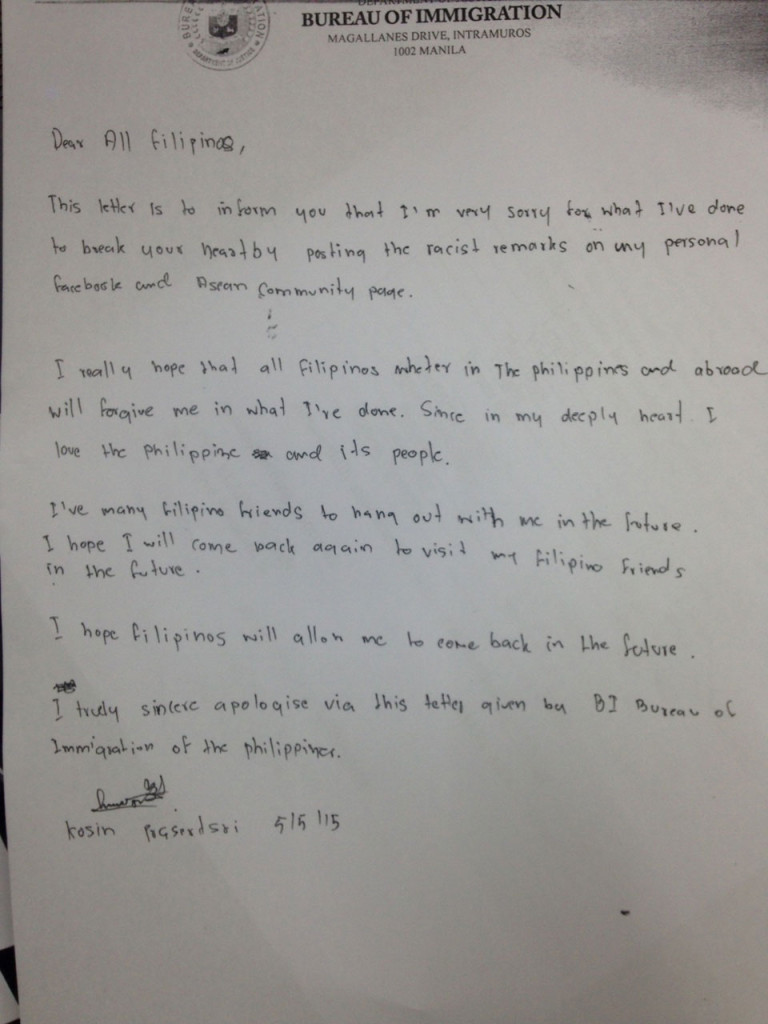 BUREAU OF IMMIGRATION
MAGALLANES DRIVE, INTRAMUROS
1002 MANILA
DEPARTMENT OF JUSTICE
Dear All filipinos,
This letter is to inform you that I'm very sorry for what I've done
to break your heart by posting the racist remarks on my personal
facebook and Asean Community page.
I really hope that all filipinos wheter in The philippines and abroad
will forgive me in what I've done. Since in my deeply heart. I
love the philippine and its people.
I've many filipino friends to hang out with me in the future.
I hope I will come back again to visit my filipino friends
in the future.
I hope filipinos will allow me to come back in the future.
I truely sincere apologise via this letter given by BI Bureau of
Immigration of the philippines.
kosin Prasertsri 5/5/15